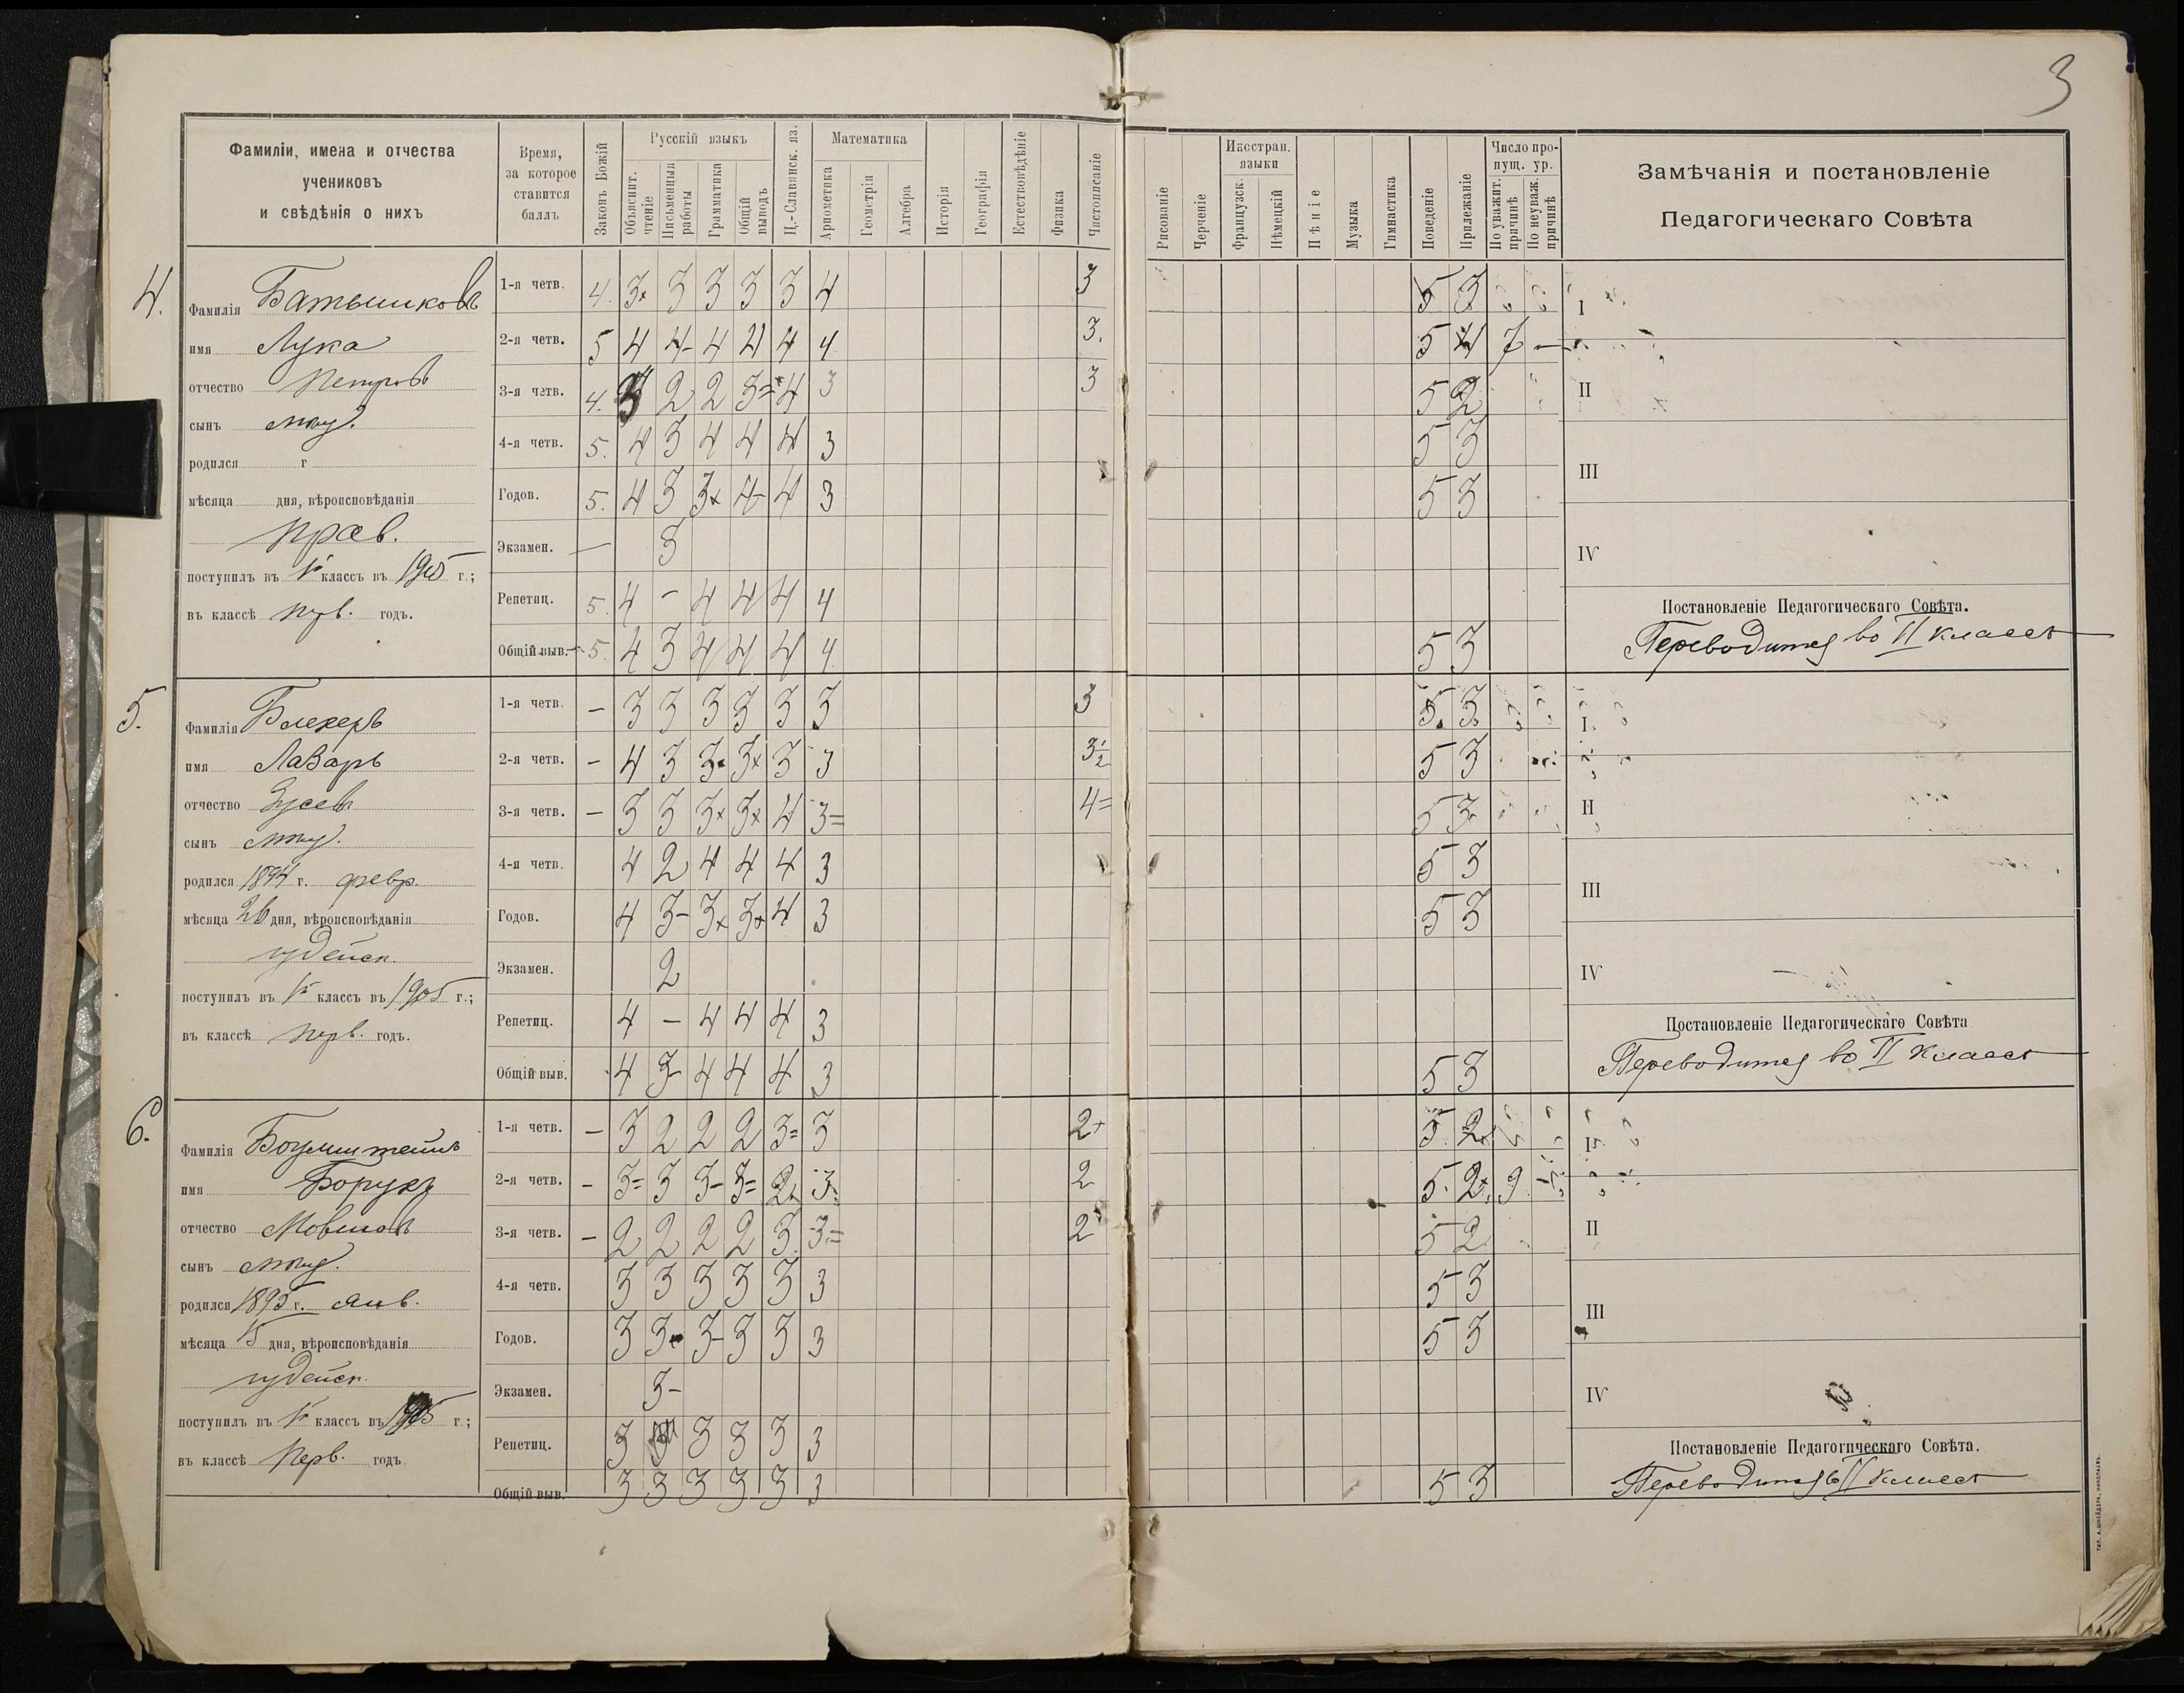 3
Фамиліи, имена и отчества
учениковъ
и свѣдѣнія о нихъ
Время,
за которое
ставится
баллъ
Законъ Божій
Русскій языкъ
Объяснит. чтеніе
Письменныя работы
Грамматика
Общій выводъ
Ц.-Славянск. яз.
Математика
Ариѳметика
Геометрія
Алгебра
Исторія
Географія
Естествовѣдѣніе
Физика
Чистописаніе
Рисованіе
Черченіе
Иностран. языки
Французск.
Нѣмецкій
Пѣніе
Музыка
Гимнастика
Поведеніе
Прилежаніе
Число пропущ. ур.
По уважит. причинѣ
По неуваж. причинѣ
Замѣчанія и постановленіе
Педагогическаго Совѣта
4.
Фамилія Батышковъ
имя Лука
отчество Петровъ
сынъ
родился г
мѣсяца дня, вѣроисповѣданія
прав.
поступилъ въ классъ въ 1905 г.;
въ классѣ перв. годъ.
1-я четв. 4. 3+ 3 3 3 3 4 3 5 3 I
2-я четв. 5 4 4- 4 4 4 4 3. 5 4 7 —
3-я четв. 4. 3 2 2 3= 4 3 3 5 2 II
4-я четв. 5. 4 3 4 4 4 3 5 3
Годов. 5. 4 3 3+ 4- 4 3 5 3 III
Экзамен. — 3 IV
Репетиц. 5. 4 – 4 4 4 4
Общій выв. 5. 4 3 4 4 4 4 5 3
Постановленіе Педагогическаго Совѣта.
Переводится во II классъ
5.
Фамилія Блехеръ
имя Лазарь
отчество
сынъ
родился 1894 г. февр.
мѣсяца 26 дня, вѣроисповѣданія
іудейск.
поступилъ въ классъ въ 1905 г.;
въ классѣ перв. годъ.
1-я четв. – 3 3 3 3 3 3 3 5. 3. I
2-я четв. – 4 3 3+ 3+ 3 3 3½ 5 3
3-я четв. – 3 3 3+ 3+ 4 3= 4= 5 3 II
4-я четв. 4 2 4 4 4 3 5 3
Годов. 4 3- 3+ 3+ 4 3 5 3 III
Экзамен. 2 IV
Репетиц. 4 – 4 4 4 3
Общій выв. 4 3 4 4 4 3 5 3
Постановленіе Педагогическаго Совѣта
Переводится во II классъ
6.
Фамилія
имя Борухъ
отчество Мовшовъ
сынъ
родился 1895 г. янв.
мѣсяца 15 дня, вѣроисповѣданія
іудейск.
поступилъ въ классъ въ г.;
въ классѣ перв. годъ
1-я четв. – 3 2 2 2 3= 3 2+ 5 2+ I
2-я четв. – 3= 3 3- 3= 2+ 3. 2 5. 2+ 9
3-я четв. – 2 2 2 2 3 3= 2 5 2 II
4-я четв. 3 3 3 3 3 3 5 3
Годов. 3 3- 3- 3 3 3 5 3 III
Экзамен. 3- IV
Репетиц. 3 3 3 3 3
Общій выв. 3 3 3 3 3 3 5 3
Постановленіе Педагогическаго Совѣта.
Переводится во II классъ
ТИП. А. ШНЕЙДЕРА, НИКОЛАЕВЪ.